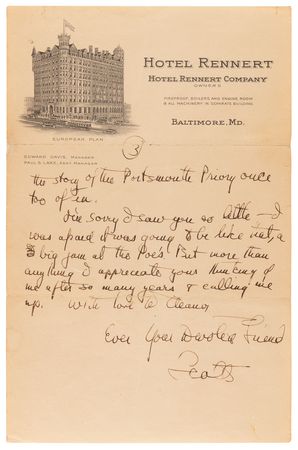 HOTEL RENNERT
HOTEL RENNERT COMPANY
OWNERS
FIREPROOF, BOILERS AND ENGINE ROOM
& ALL MACHINERY IN SEPARATE BUILDING
BALTIMORE, MD.
EUROPEAN PLAN
EDWARD DAVIS, MANAGER
PAUL S. LAKE, ASST MANAGER
3
the story of the Portsmouth Priory once
too often.
I'm sorry I saw you so little – I
was afraid it was going to be like that, a
big jam at the Poe's. But more than
anything I appreciate your thinking of
me after so many years & calling me
up. With love to Eleanor
Ever Your Devoted Friend
Scott